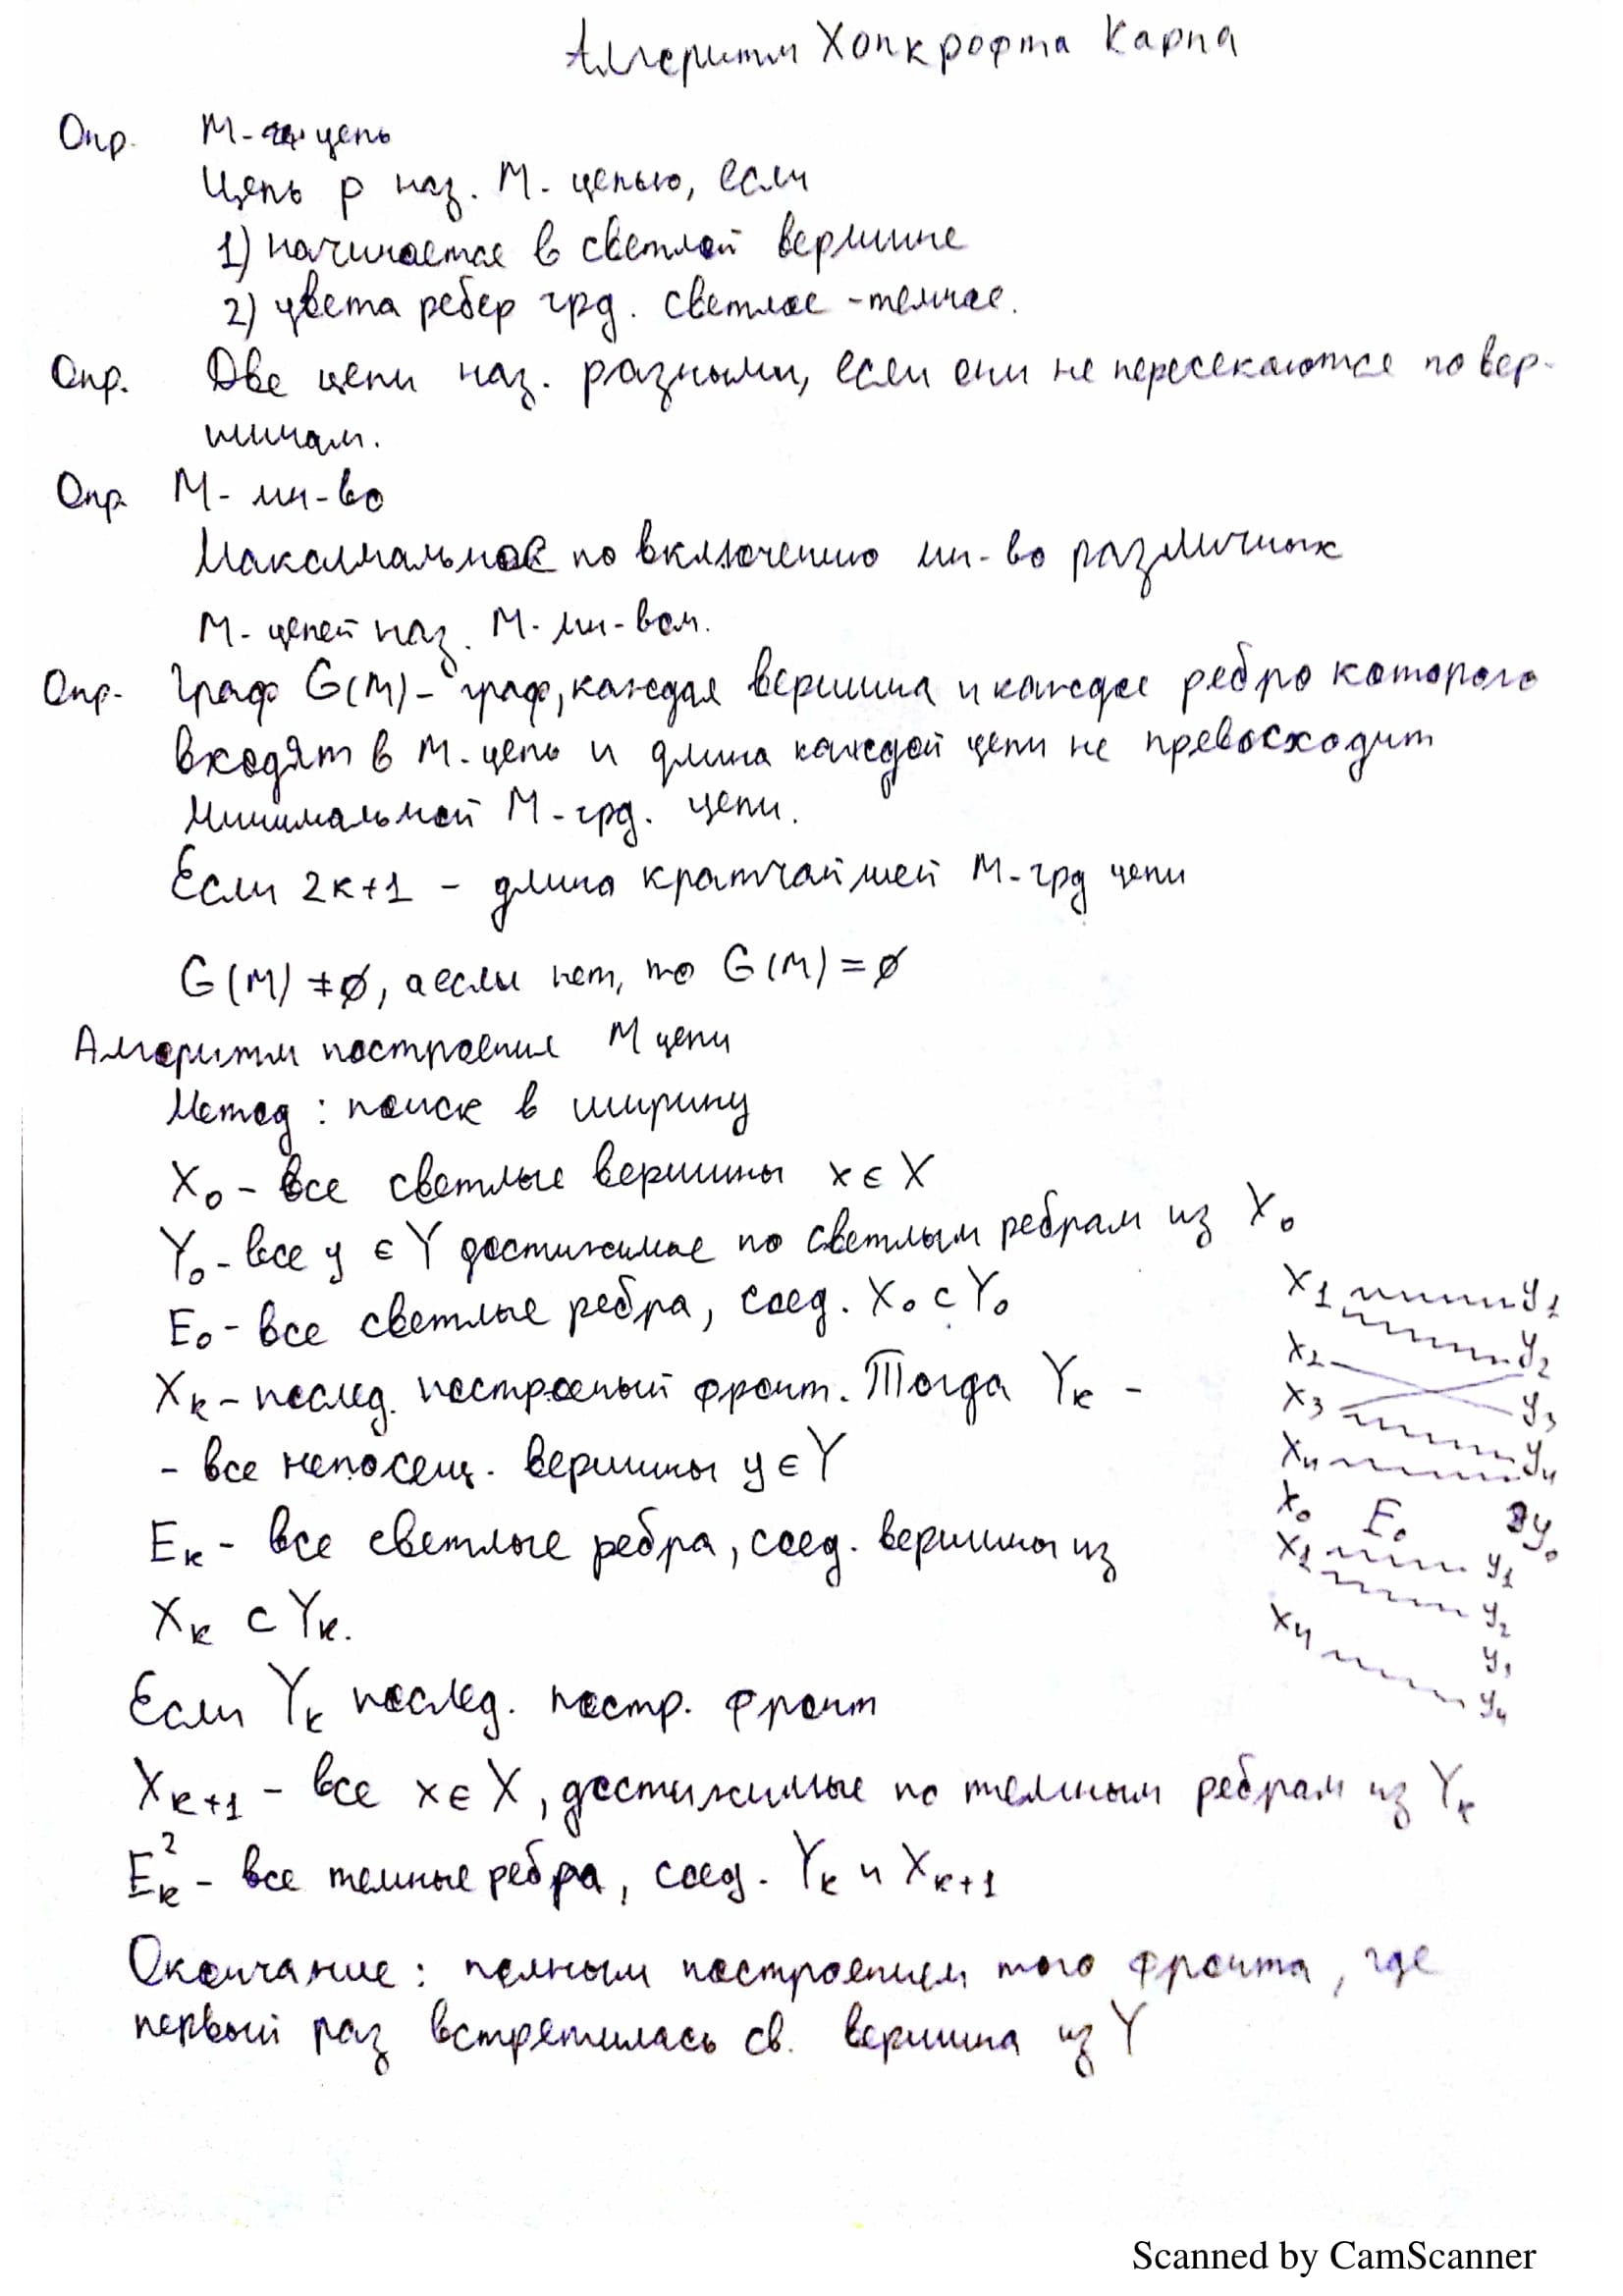 Алгоритм Хопкрофта Карпа
Опр. М-цепь
Цепь p наз. М-цепью, если
1) начинается в светлой вершине
2) цвета ребер чрд. светлое-темное.
Опр. Две цепи наз. разными, если они не пересекаются по вер-
шинам.
Опр М-мн-во
Максимальное по включению мн-во различных
М-цепей наз. М-мн-вом.
Опр. Граф G(M) - граф, каждая вершина и каждое ребро которого
входят в М-цепь и длина каждой цепи не превосходит
минимальной М-чрд. цепи.
Если 2к+1 - длина кратчайшей М-чрд цепи
G(M) ≠ ∅, а если нет, то G(M) = ∅
Алгоритм построения М цепи
Метод: поиск в ширину
X₀ - все светлые вершины x ∈ X
Y₀ - все y ∈ Y достижимые по светлым ребрам из X₀
E₀ - все светлые ребра, соед. X₀ с Y₀
Xₖ - послед. построеный фронт. Тогда Yₖ -
- все непосещ. вершины y ∈ Y
Eₖ - все светлые ребра, соед. вершины из
Xₖ с Yₖ.
Если Yₖ послед. постр. фронт
Xₖ₊₁ - все x ∈ X, достижимые по темным ребрам из Yₖ
Eₖ² - все темные ребра, соед. Yₖ и Xₖ₊₁
Окончание: полным построением того фронта, где
первый раз встретилась св. вершина из Y
X₁ y₁
y₂
X₂
X₃ y₃
X₄ y₄
X₀ E₀ y₀
X₁ y₁
y₂
X₄
y₄
Scanned by CamScanner